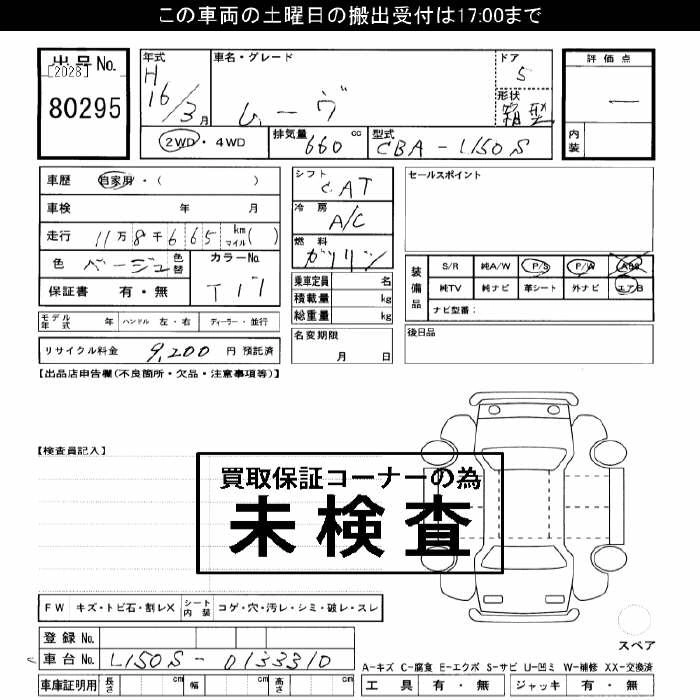 この車両の土曜日の搬出受付は17:00まで
出品No.
[2028]
80295
年式
H
16/3月
車名・グレード
ムーヴ
ドア
5
形状
箱型
評価点
―
内装
2WD・4WD
排気量
660 cc
型式
CBA-L150S
車歴 自家用・( )
車検 年 月
走行 11万8千665 km マイル( )
色 ベージュ 色替
カラーNo.
T17
保証書 有・無
シフト
CAT
冷房
A/C
燃料
ガソリン
乗車定員 名
積載量 kg
総重量 kg
セールスポイント
装備品
S/R 純A/W P/S P/W ABS
純TV 純ナビ 革シート 外ナビ エアB
ナビ型番:
モデル年式 年 ハンドル 左・右 ディーラー・並行
リサイクル料金 9,200 円 預託済
名変期限
月 日
後日品
【出品店申告欄(不良箇所・欠品・注意事項等)】
【検査員記入】
買取保証コーナーの為
未検査
FW キズ・トビ石・割レX シート内装 コゲ・穴・汚レ・シミ・破レ・スレ
スペア
登録No.
車台No. L150S-0133310
A-キズ C-腐食 E-エクボ S-サビ U-凹ミ W-補修 XX-交換済
車庫証明用 長さ cm 幅 cm 高さ cm
工具 有・無 ジャッキ 有・無